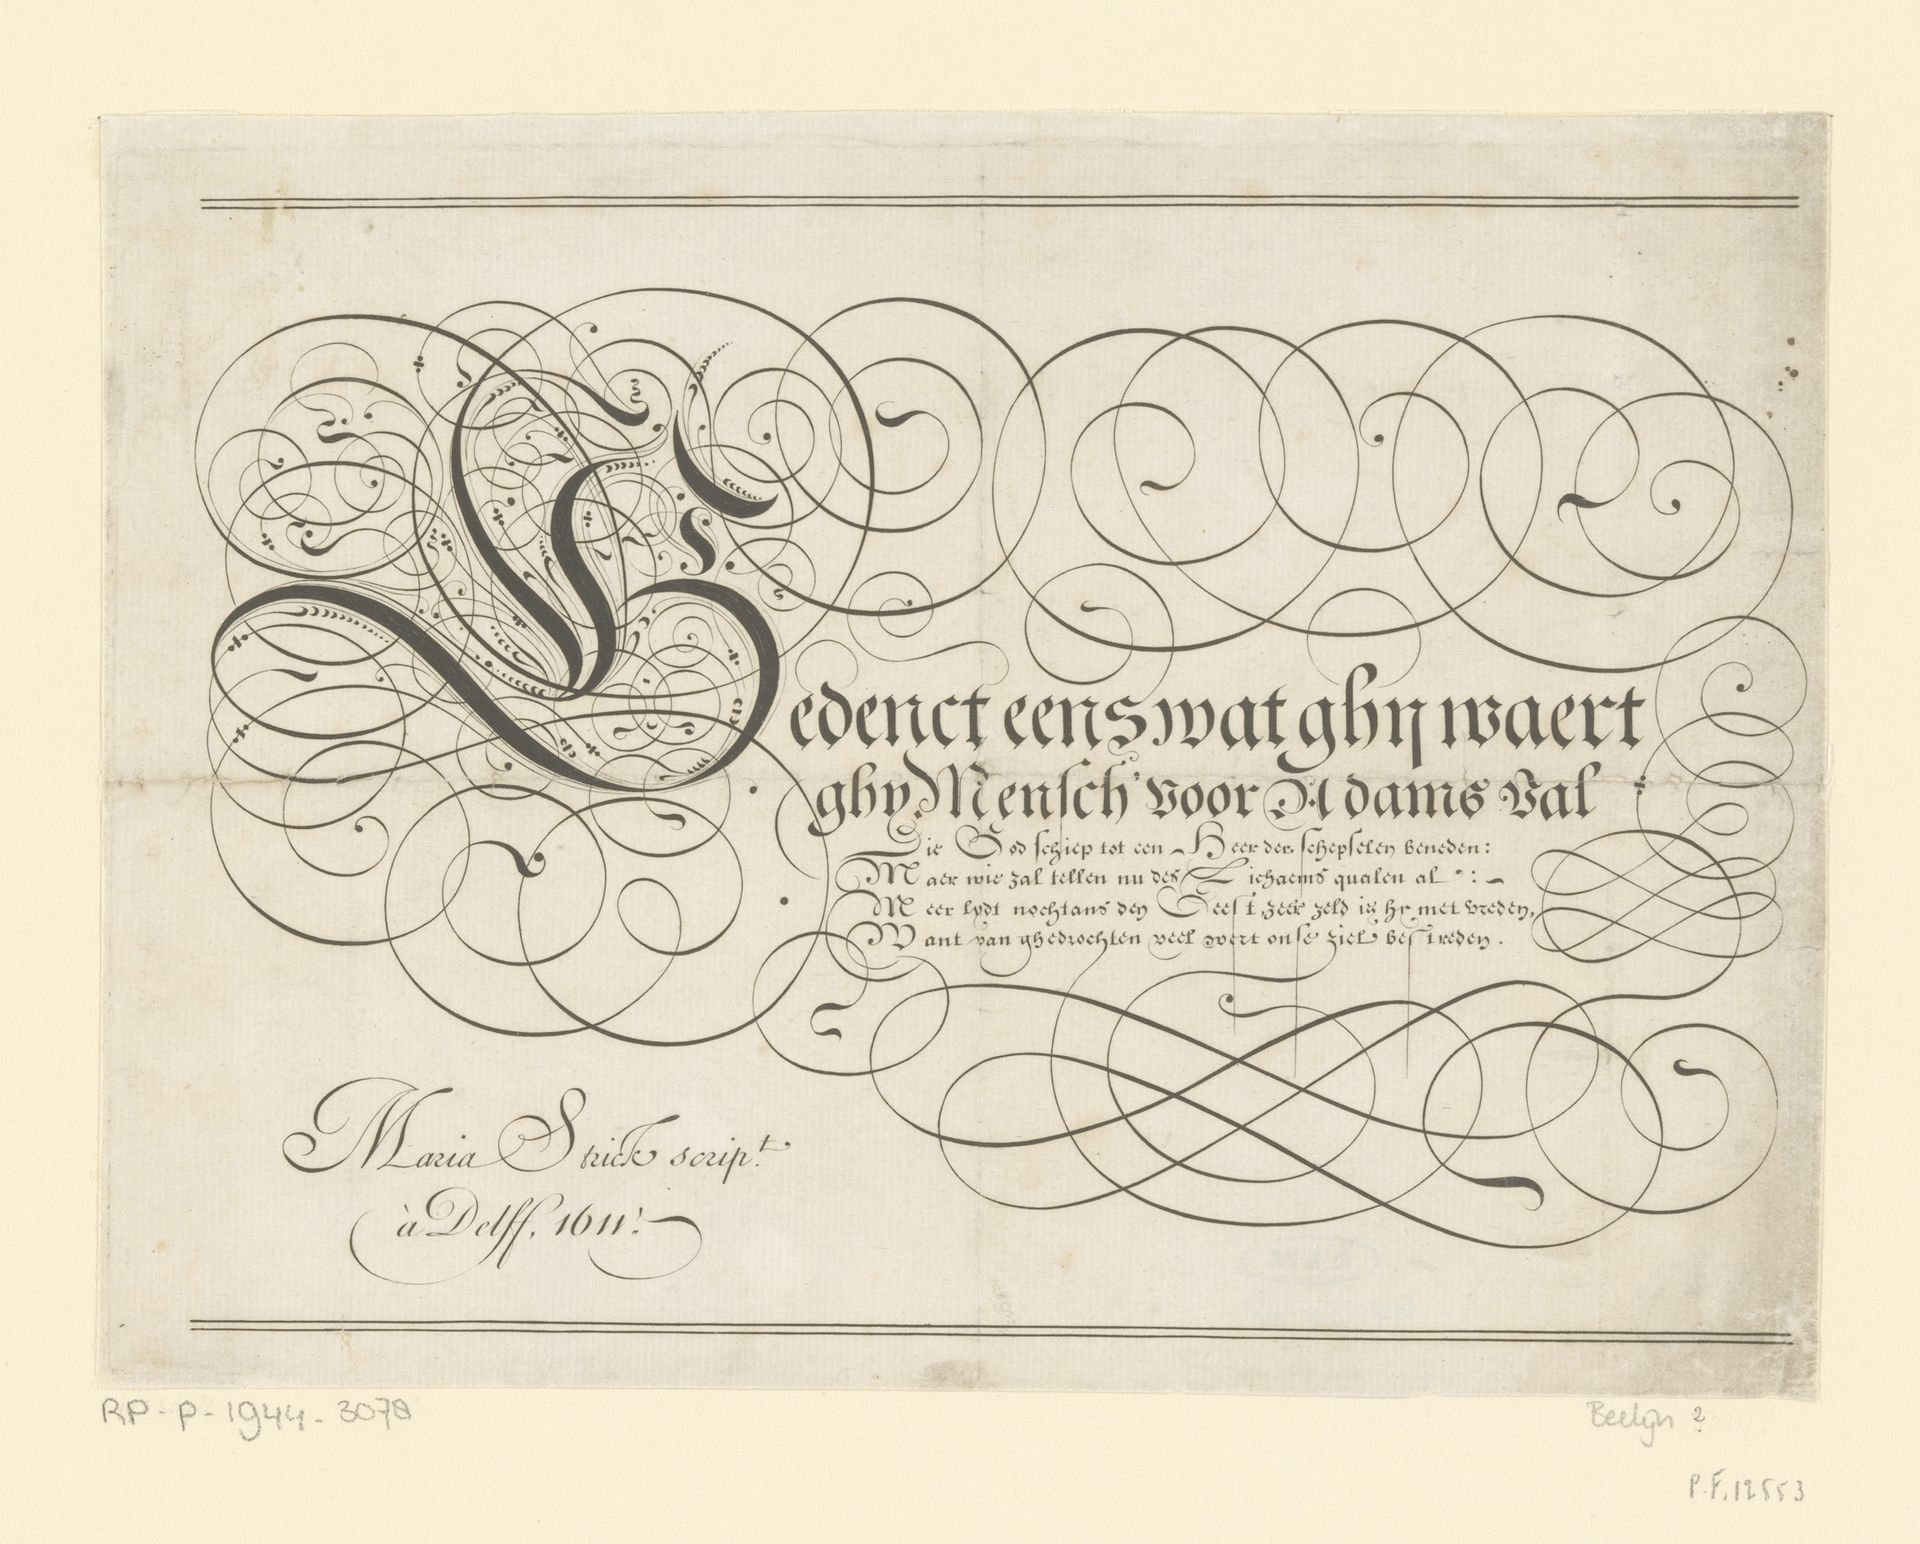 Gedenct eens wat ghy waert
ghy Mensch voor Adams Val
Die God schiep tot een Heer der schepselen beneden:
Maer wie zal tellen nu des Lichaems qualen al:
Meer lydt nochtans den Geest, zeer zeld is hy met vreden,
Want van ghedrochten veel wert onse ziel bestreden.
Maria Strick scrip.t
à Delff. 1611.
RP-P-1944-3078
Beelijn ?
P.F.12553